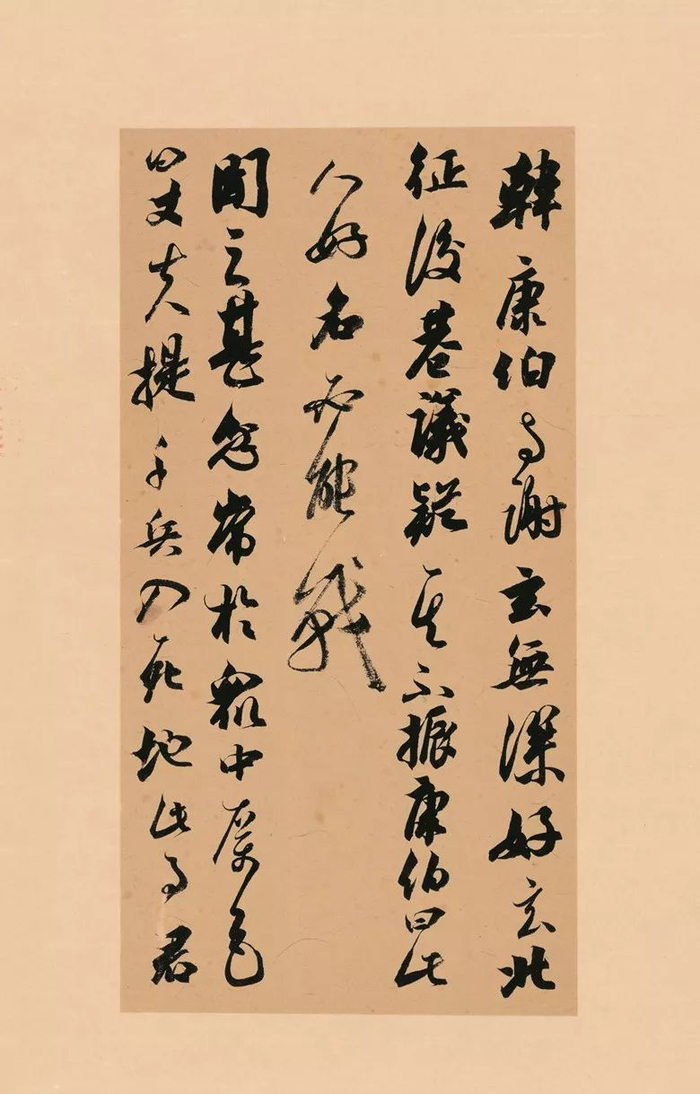 韓康伯與謝玄無深好玄北
征後巷議疑其不振康伯曰此
人好名必能戰
聞之甚忿常於眾中厲色
曰丈夫提千兵入死地此事君